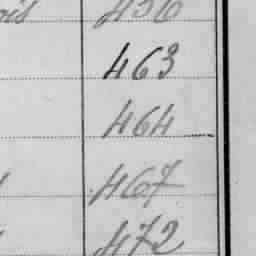 463
464
467
472